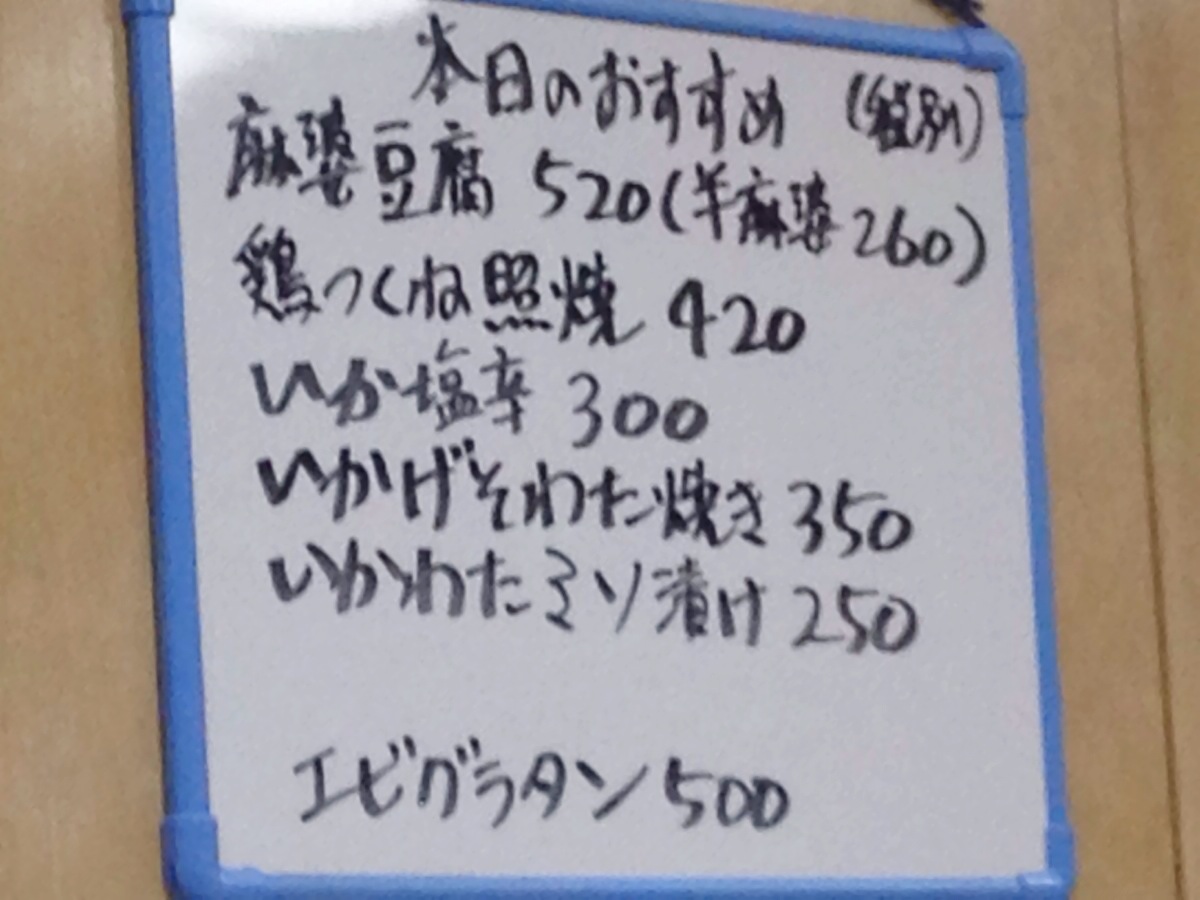 本日のおすすめ (税別)
麻婆豆腐 520(半麻婆 260)
鶏つくね照焼 420
いか塩辛 300
いかげそわた焼き 350
いかわたミソ漬け 250
エビグラタン 500